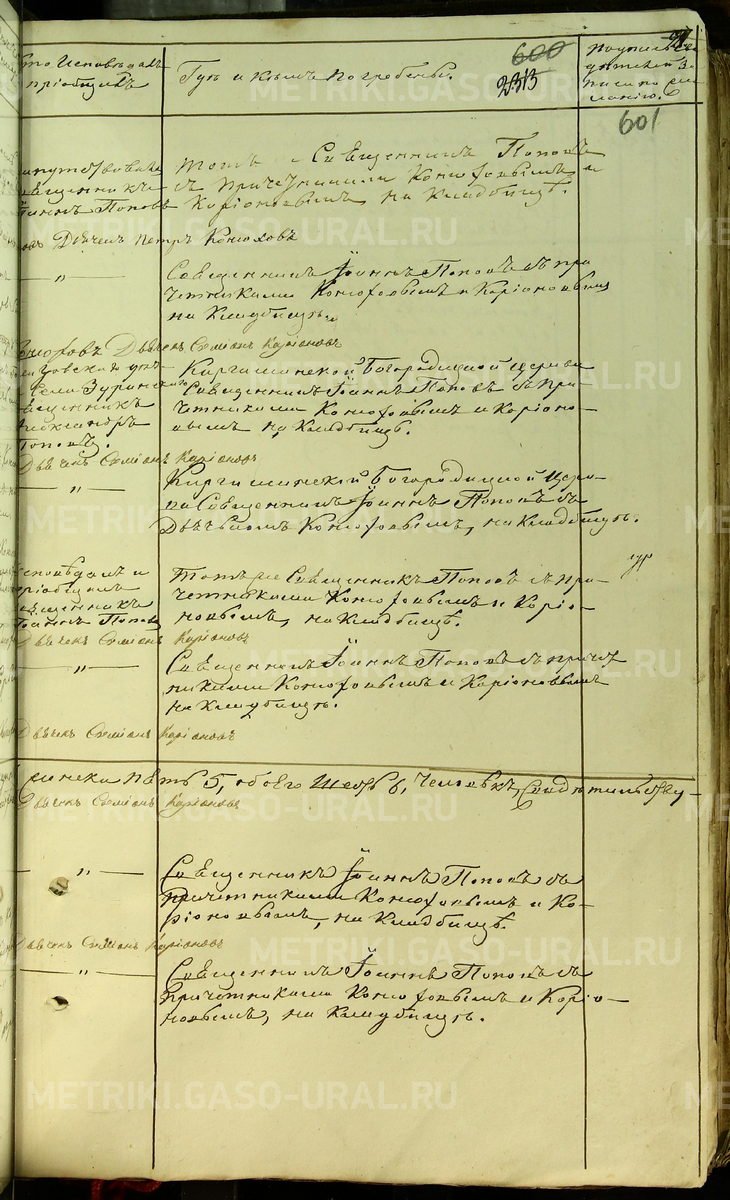 Кто Исповѣдалъ
пріобщилъ
Гдѣ и кѣмъ погребены.
600
2313
91
601
напутствовалъ
священникъ
Іоаннъ Поповъ
Тотъ же Священникъ Поповъ
съ причетниками Конюховымъ и
Каріоновымъ на кладбищѣ.
Дьячекъ Петръ Конюховъ
— „ —
Священникъ Іоаннъ Поповъ съ при
четниками Конюховымъ и Каріоновымъ
на кладбищѣ.
Конюховъ Дьячекъ Симіонъ Каріоновъ
села Зуринскаго
священникъ
Александръ
Поповъ.
Киргишанской Богородицкой церкви
Священникъ Іоаннъ Поповъ съ при-
четниками Конюховымъ и Каріоно-
вымъ на кладбищѣ.
Дьячекъ Симіонъ Каріоновъ
— „ —
Киргишанской Богородицкой Церк-
ви Священникъ Іоаннъ Поповъ съ
Дьячькомъ Конюховымъ, на кладбищѣ.
исповѣдалъ и
пріобщилъ
священникъ
Іоаннъ Поповъ
Тотъ же Священникъ Поповъ съ при-
четниками Конюховымъ и Каріо-
новымъ, на кладбищѣ.
Дьячекъ Симіонъ Каріоновъ
— „ —
Священникъ Іоаннъ Поповъ съ причет
никами Конюховымъ и Каріоновымъ
на кладбищѣ.
Дьячекъ Симіонъ Каріоновъ
пять 5, обоего Шесть 6, человѣкъ, Свидѣтельству-
Дьячекъ Симіонъ Каріоновъ
— „ —
Священникъ Іоаннъ Поповъ съ
причетниками Конюховымъ и Ка-
ріоновымъ, на кладбищѣ.
Дьячекъ Симіонъ Каріоновъ
— „ —
Священникъ Іоаннъ Поповъ съ
причетниками Конюховымъ и Каріо-
новымъ, на кладбищѣ.
METRIKI.GASO-URAL.RU